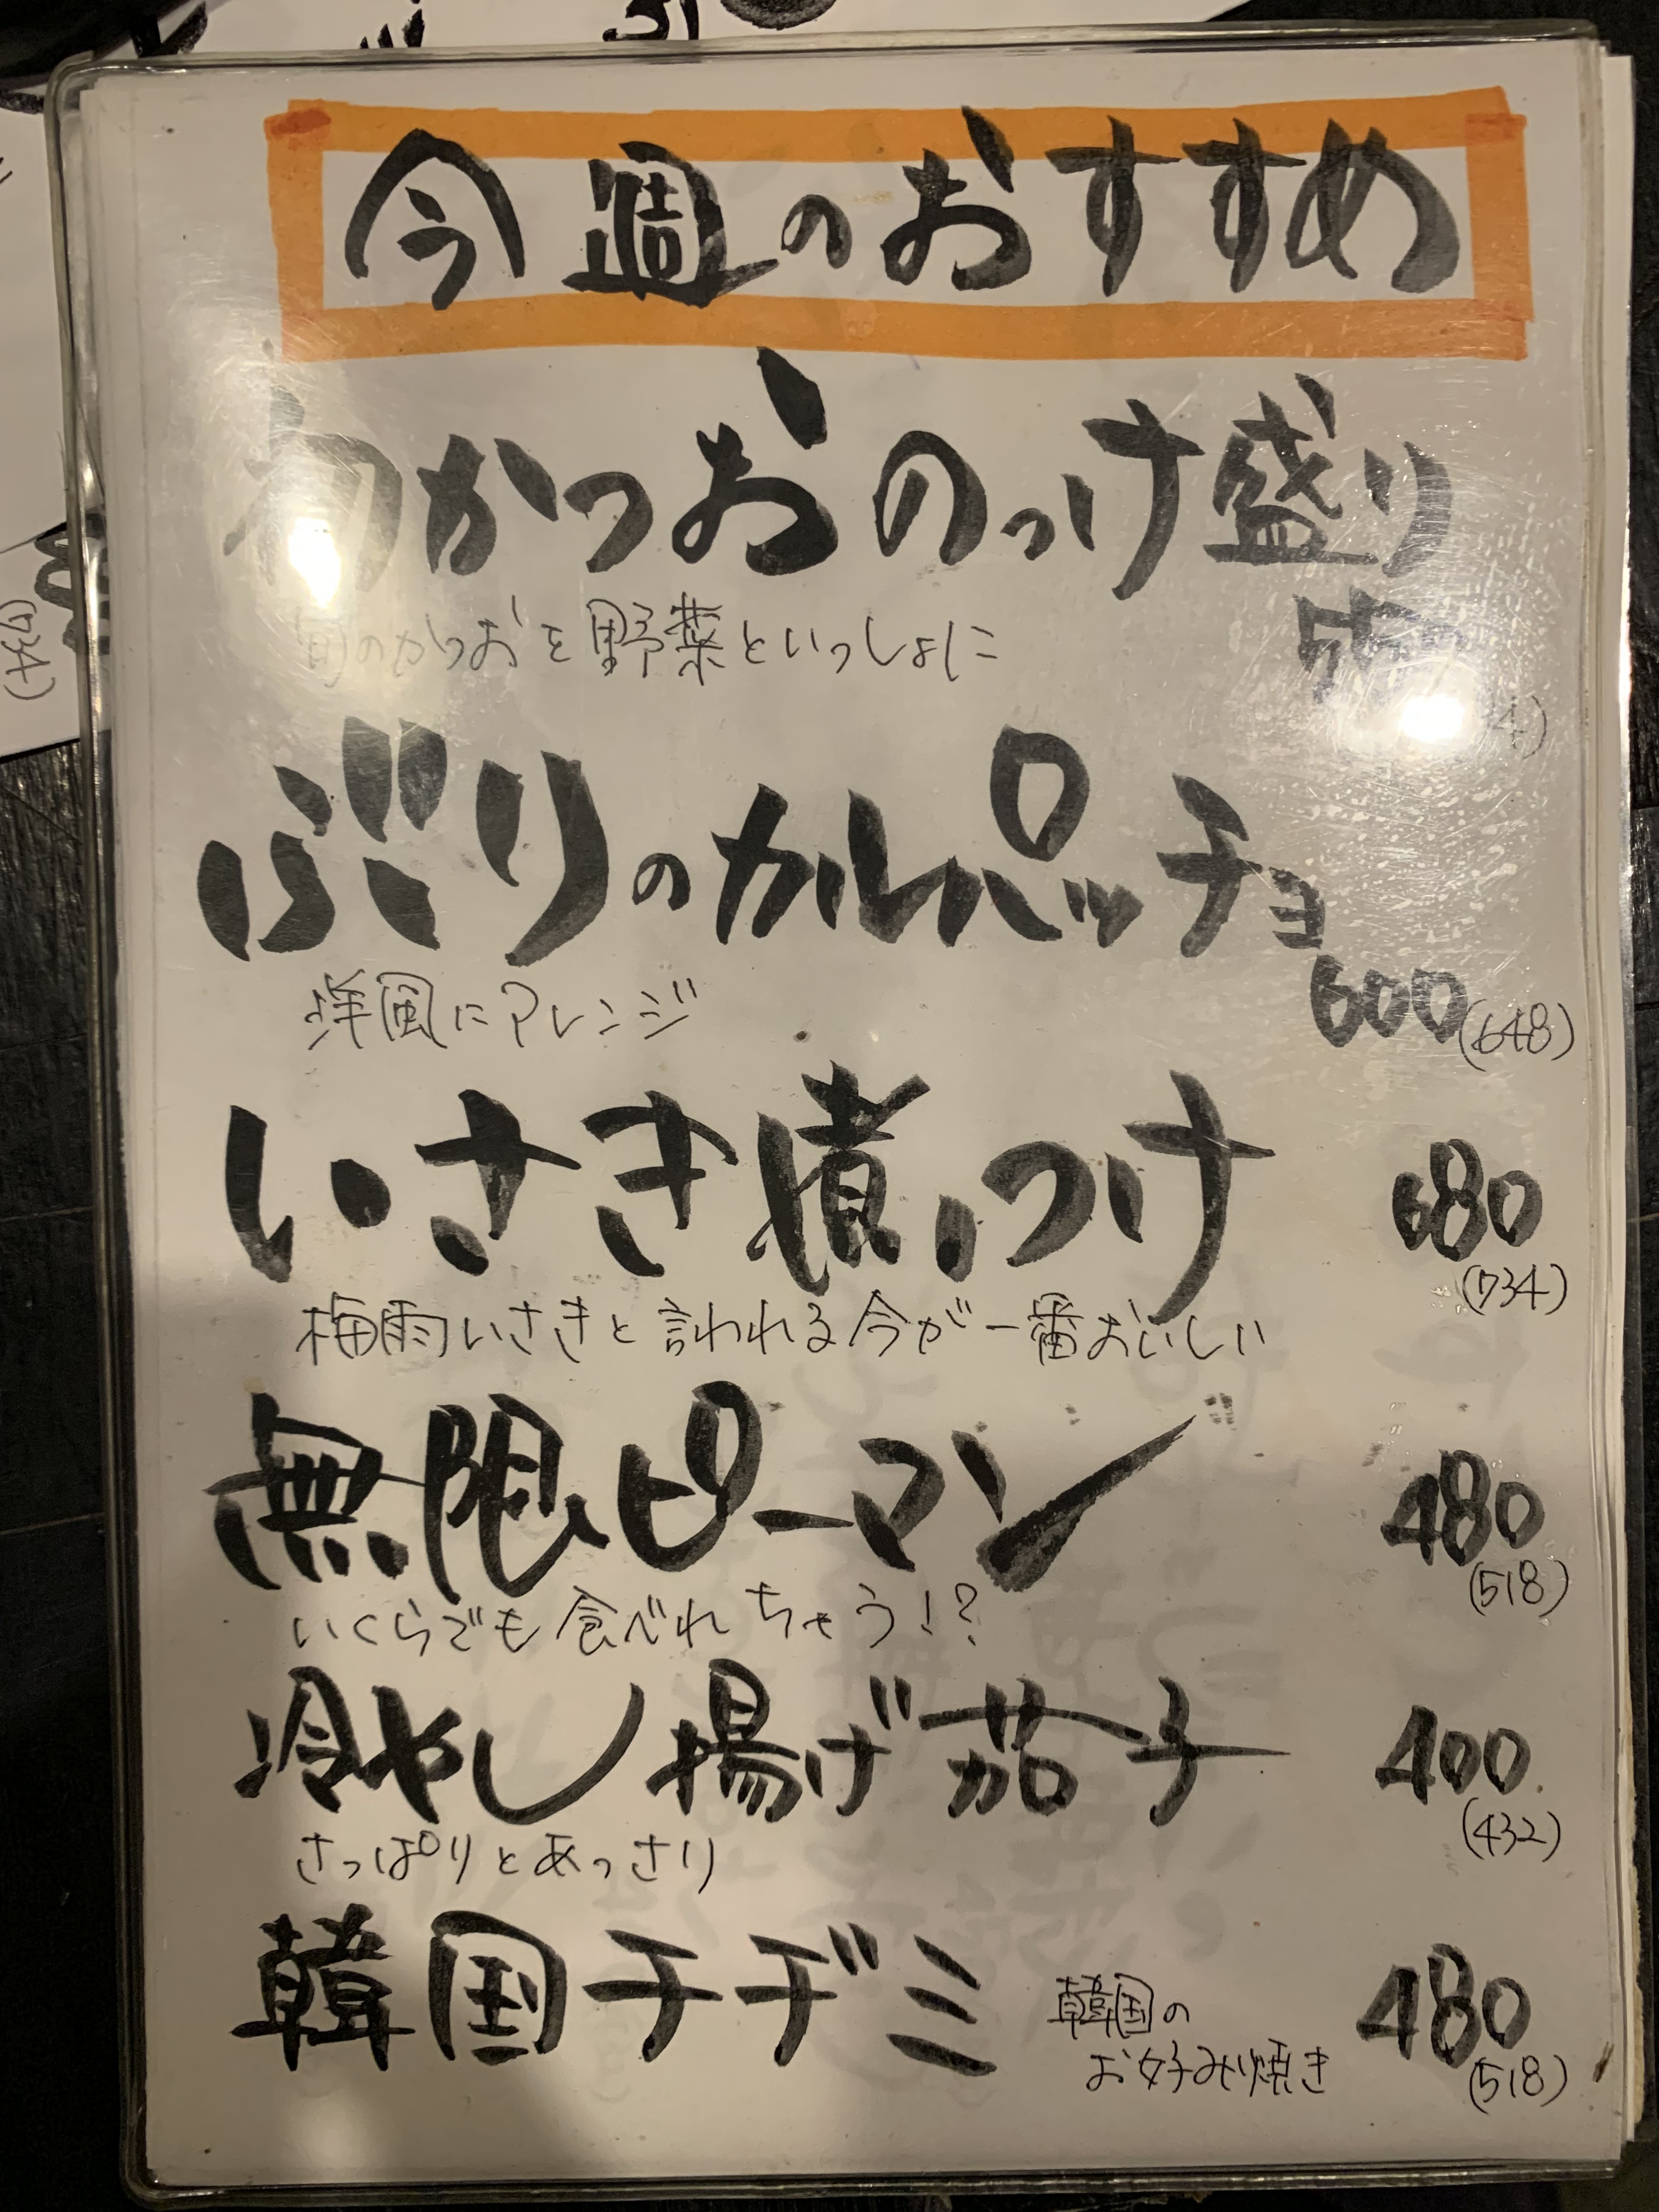 今週のおすすめ
初かつおのっけ盛り
旬のかつおを野菜といっしょに
ぶりのカルパッチョ
600(648)
洋風にアレンジ
いさき煮つけ 680
(734)
梅雨いさきと言われる今が一番おいしい
無限ピーマン 480
(518)
いくらでも食べれちゃう!?
冷やし揚げ茄子 400
(432)
さっぱりとあっさり
韓国チヂミ 韓国の
お好み焼き 480
(518)
(734)